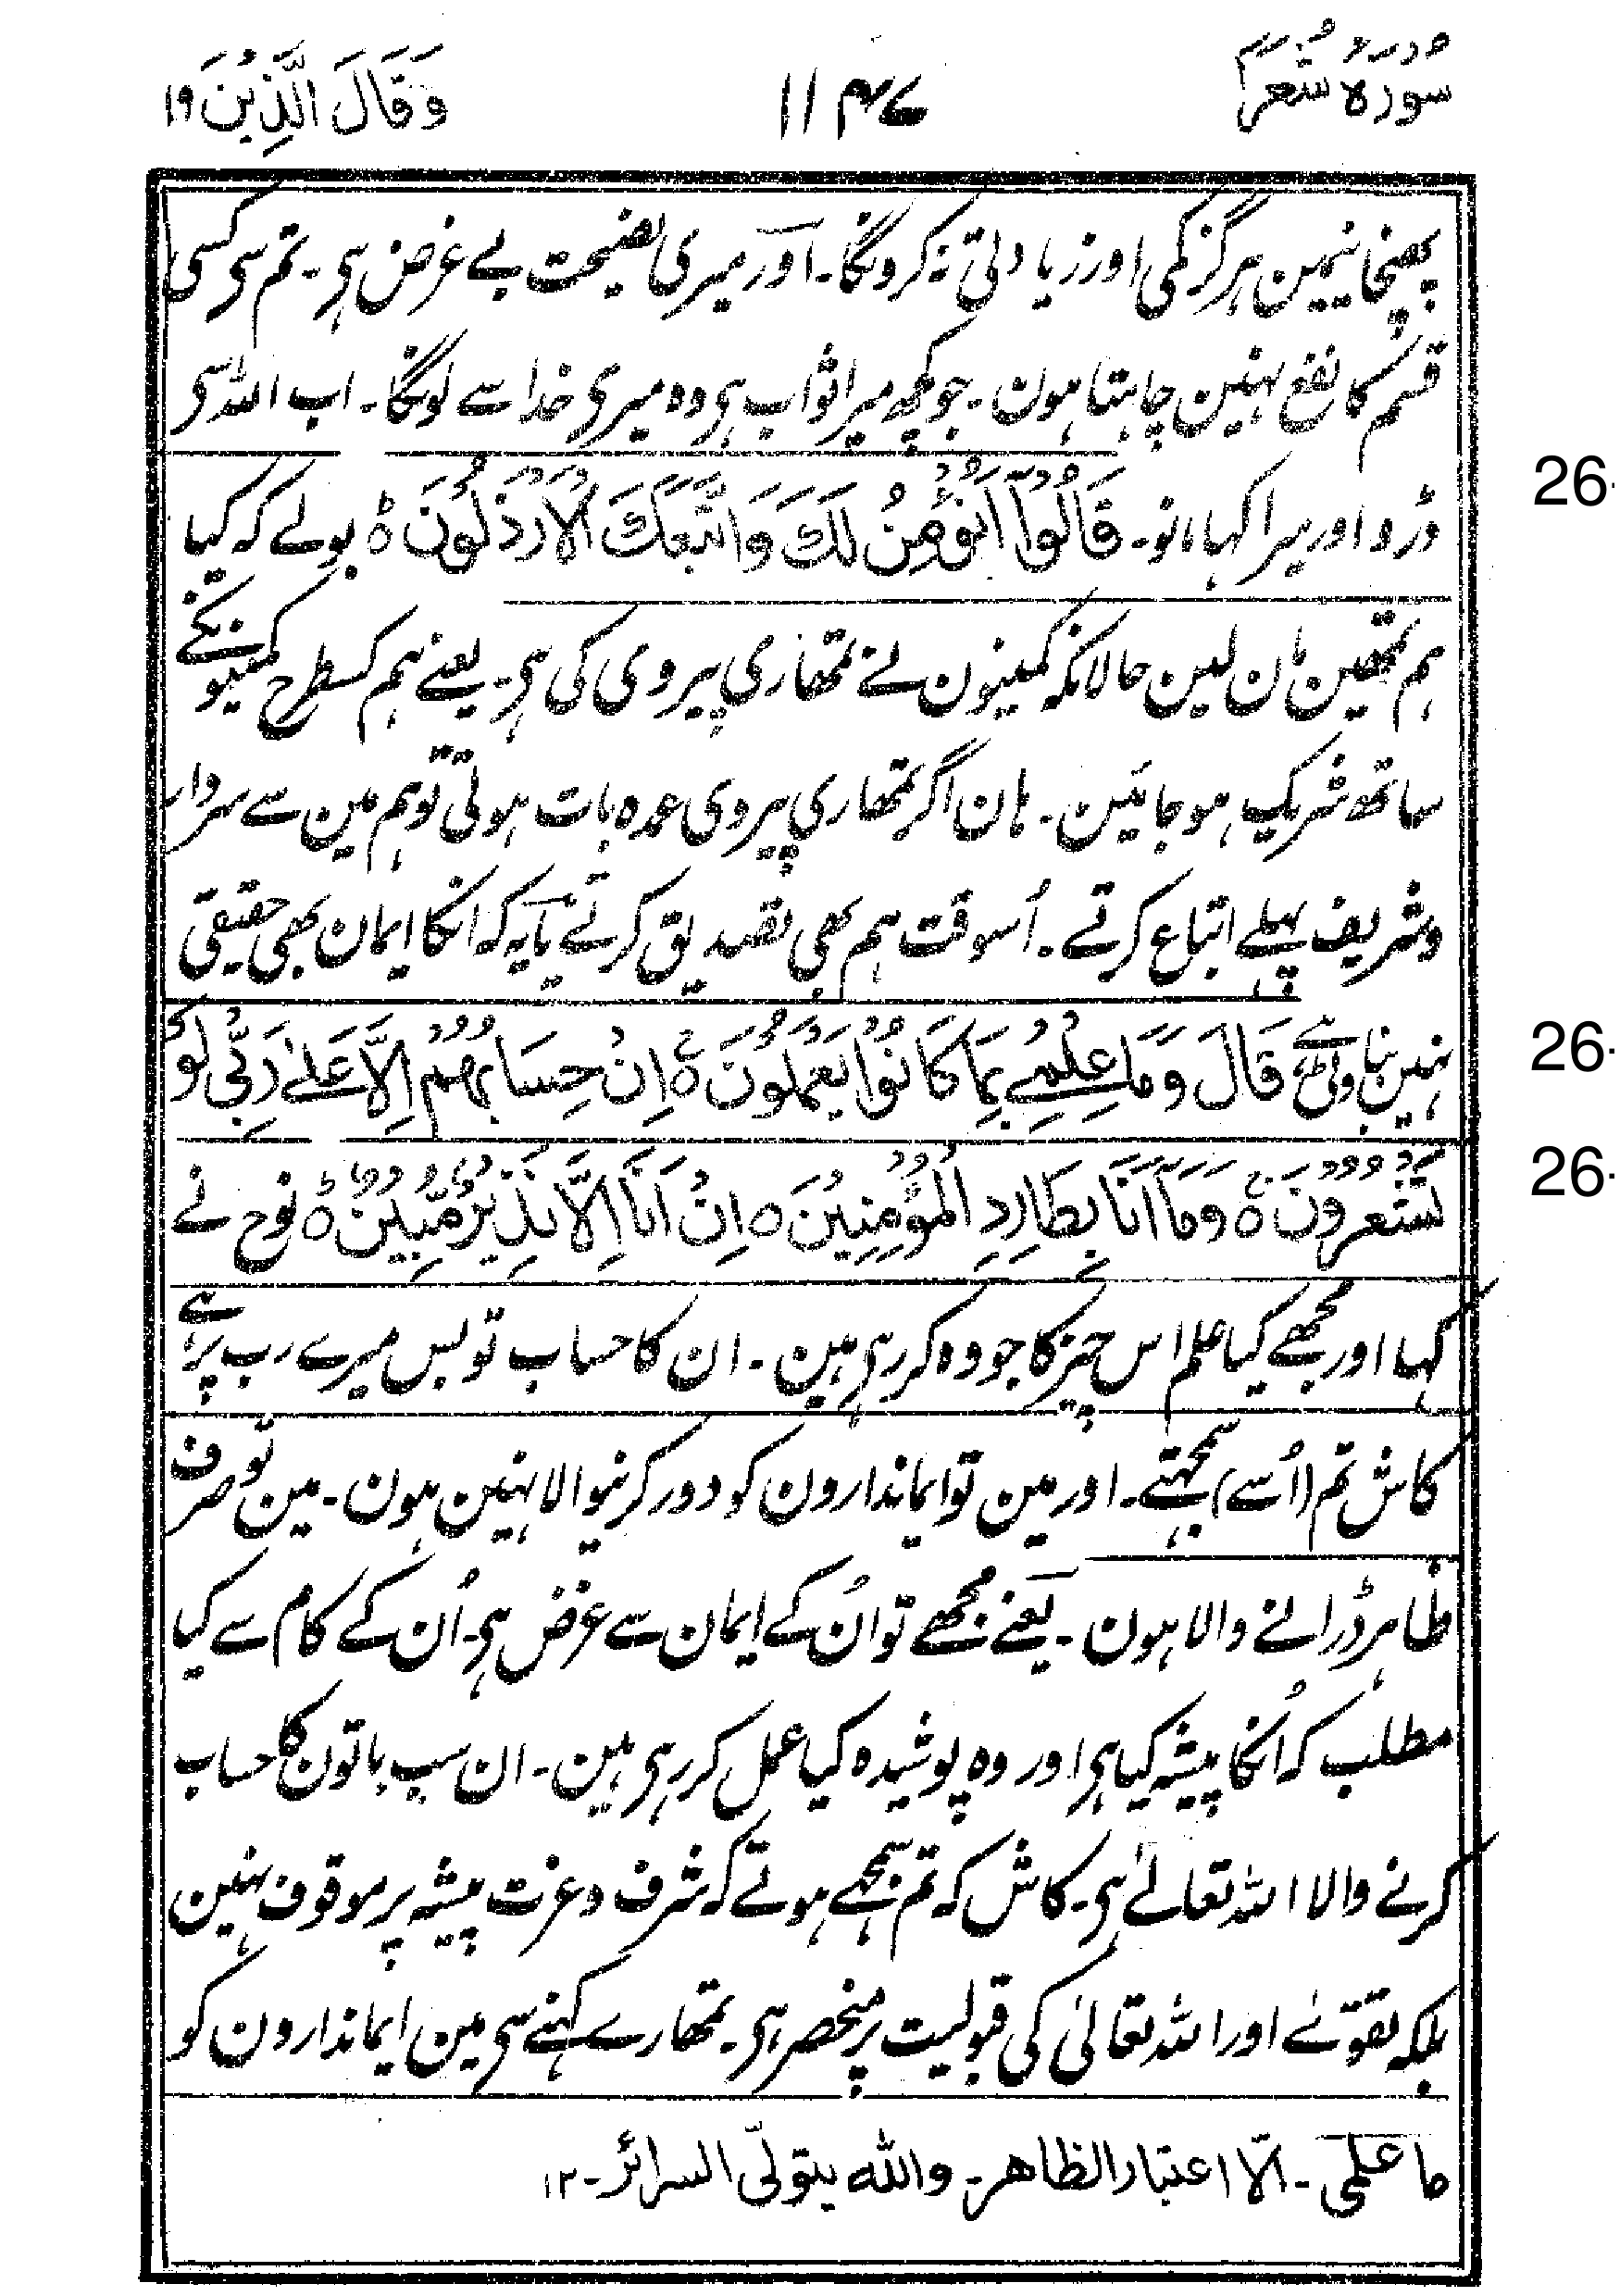 سُوْرَةُ شُعَرَا
۱۱۴۷
وَقَالَ الَّذِيْنَ ۱۹
پھنچانیمین ہرگز کمی اور زیادتی نہ کرونگا۔ اور میری نصیحت بے غرض ہی۔ تم سی کسی
قسم کا نفع نہین چاہتا ہون۔ جو کچھ میرا ثواب ہی وہ میری خدا سے لونگا۔ اب اللہ سی
ڈرو اور میرا کہا مانو۔ قَالُوْٓا اَنُؤْمِنُ لَكَ وَاتَّبَعَكَ الْاَرْذَلُوْنَ ؕ بولے کہ کیا
26
ہم تمھین مان لین حالانکہ کمینون نے تمھاری پیروی کی ہی۔ یعنے ہم کسطرح کمینونکے
ساتھ شریک ہوجائین۔ ہان اگر تمھاری پیروی عمدہ بات ہوتی تو ہم مین سے سردار
وشریف پہلے اتباع کرتے۔ اُسوقت ہم بھی تصدیق کرتے یا یہ کہ انکا ایمان بھی حقیقی
نہین بناوٹی ہے قَالَ وَمَا عِلْمِيْ بِمَا كَانُوْا يَعْمَلُوْنَ ۚ اِنْ حِسَابُهُمْ اِلَّا عَلٰے رَبِّيْ لَوْ
26
تَشْعُرُوْنَ ۚ وَمَآ اَنَا بِطَارِدِ الْمُؤْمِنِيْنَ ۝ اِنْ اَنَا اِلَّا نَذِيْرٌ مُّبِيْنٌ ؕ نوح نے
26
کہا اور مجھے کیا علم اس چیز کا جو وہ کر رہی ہین۔ ان کا حساب تو بس میرے رب پر ہے
کاش تم (اُسے) سمجھتے۔ اور مین تو ایماندارون کو دور کرنیوالا نہین ہون۔ مین تو صرف
ظاہر ڈرانے والا ہون۔ یعنے مجھے تو اُن کے ایمان سے غرض ہی۔ اُن کے کام سے کیا
مطلب کہ اُنکا پیشہ کیا ہی اور وہ پوشیدہ کیا عمل کر رہی ہین۔ ان سب باتون کا حساب
کرنے والا اللہ تعالےٰ ہی۔ کاش کہ تم سمجھے ہوتے کہ شرف وعزت پیشہ پر موقوف نہین
بلکہ تقوےٰ اور اللہ تعالیٰ کی قبولیت پر منحصر ہی۔ تمھارے کہنے سی مین ایماندارون کو
ما علمی۔ الّا اعتبار الظاهر۔ والله يتولّى السرائر۔ ۱۲